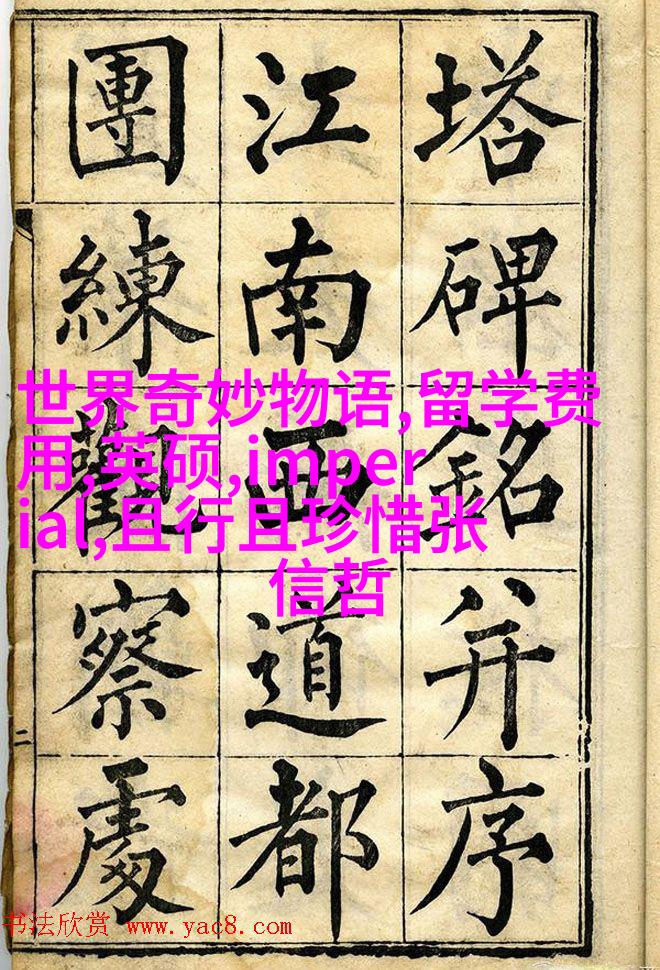 塔碑銘并序
江南西道都
團練觀察處
二
世界奇妙物语,留学费
用,英硕,imper
ial,且行且珍惜张
信哲
书法欣赏 www.yac8.com